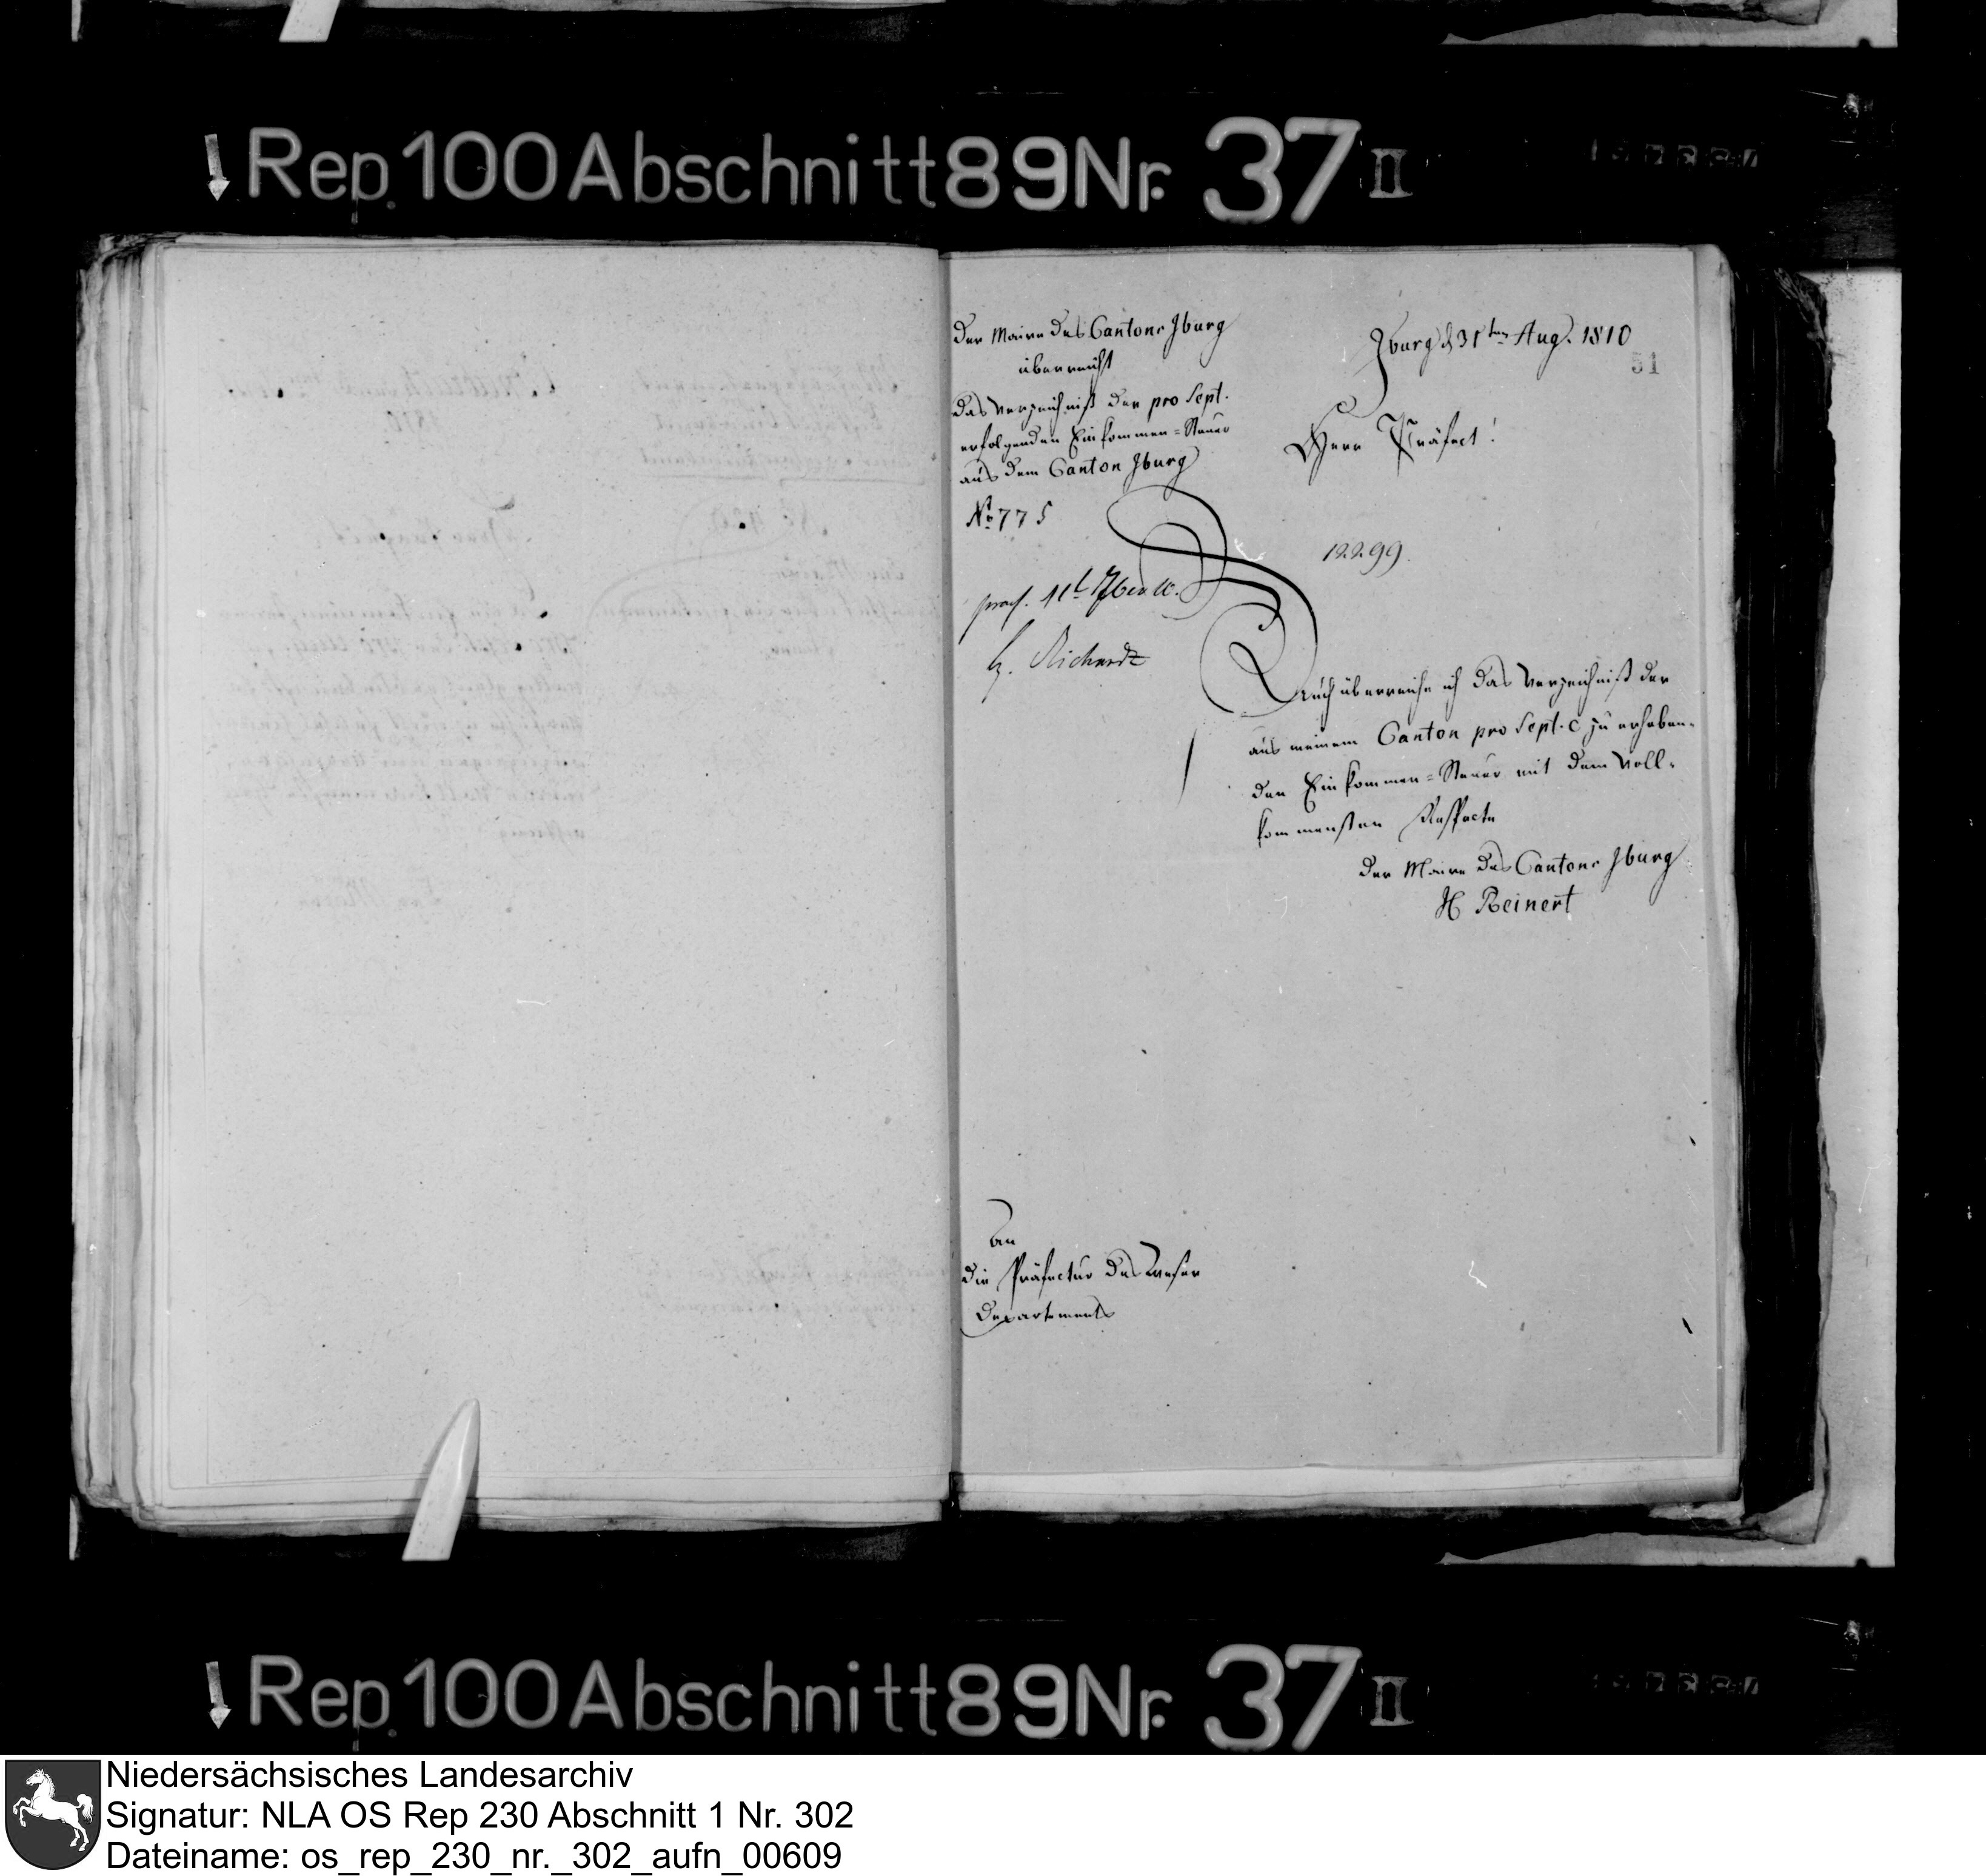 Rep. 100 Abschnitt 89 Nr. 37 II
Der Maire des Cantons Iburg
überreicht
das Verzeichniß der pro Sept.
erfolgenden Einkommen=Steuer
aus dem Canton Iburg
No 775
praes. 11t 7ber 10.
Richardt
Iburg d 31ten Aug. 1810
51
Herr Präfect!
12299.
Auch überreiche ich das Verzeichniß der
aus meinem Canton pro Sept. c zu erheben-
den Einkommen=Steuer mit dem voll-
kommensten Respecte
Der Maire des Cantons Iburg
H Reinert
An
die Präfectur des Weser
Departements
Rep. 100 Abschnitt 89 Nr. 37 II
Niedersächsisches Landesarchiv
Signatur: NLA OS Rep 230 Abschnitt 1 Nr. 302
Dateiname: os_rep_230_nr._302_aufn_00609